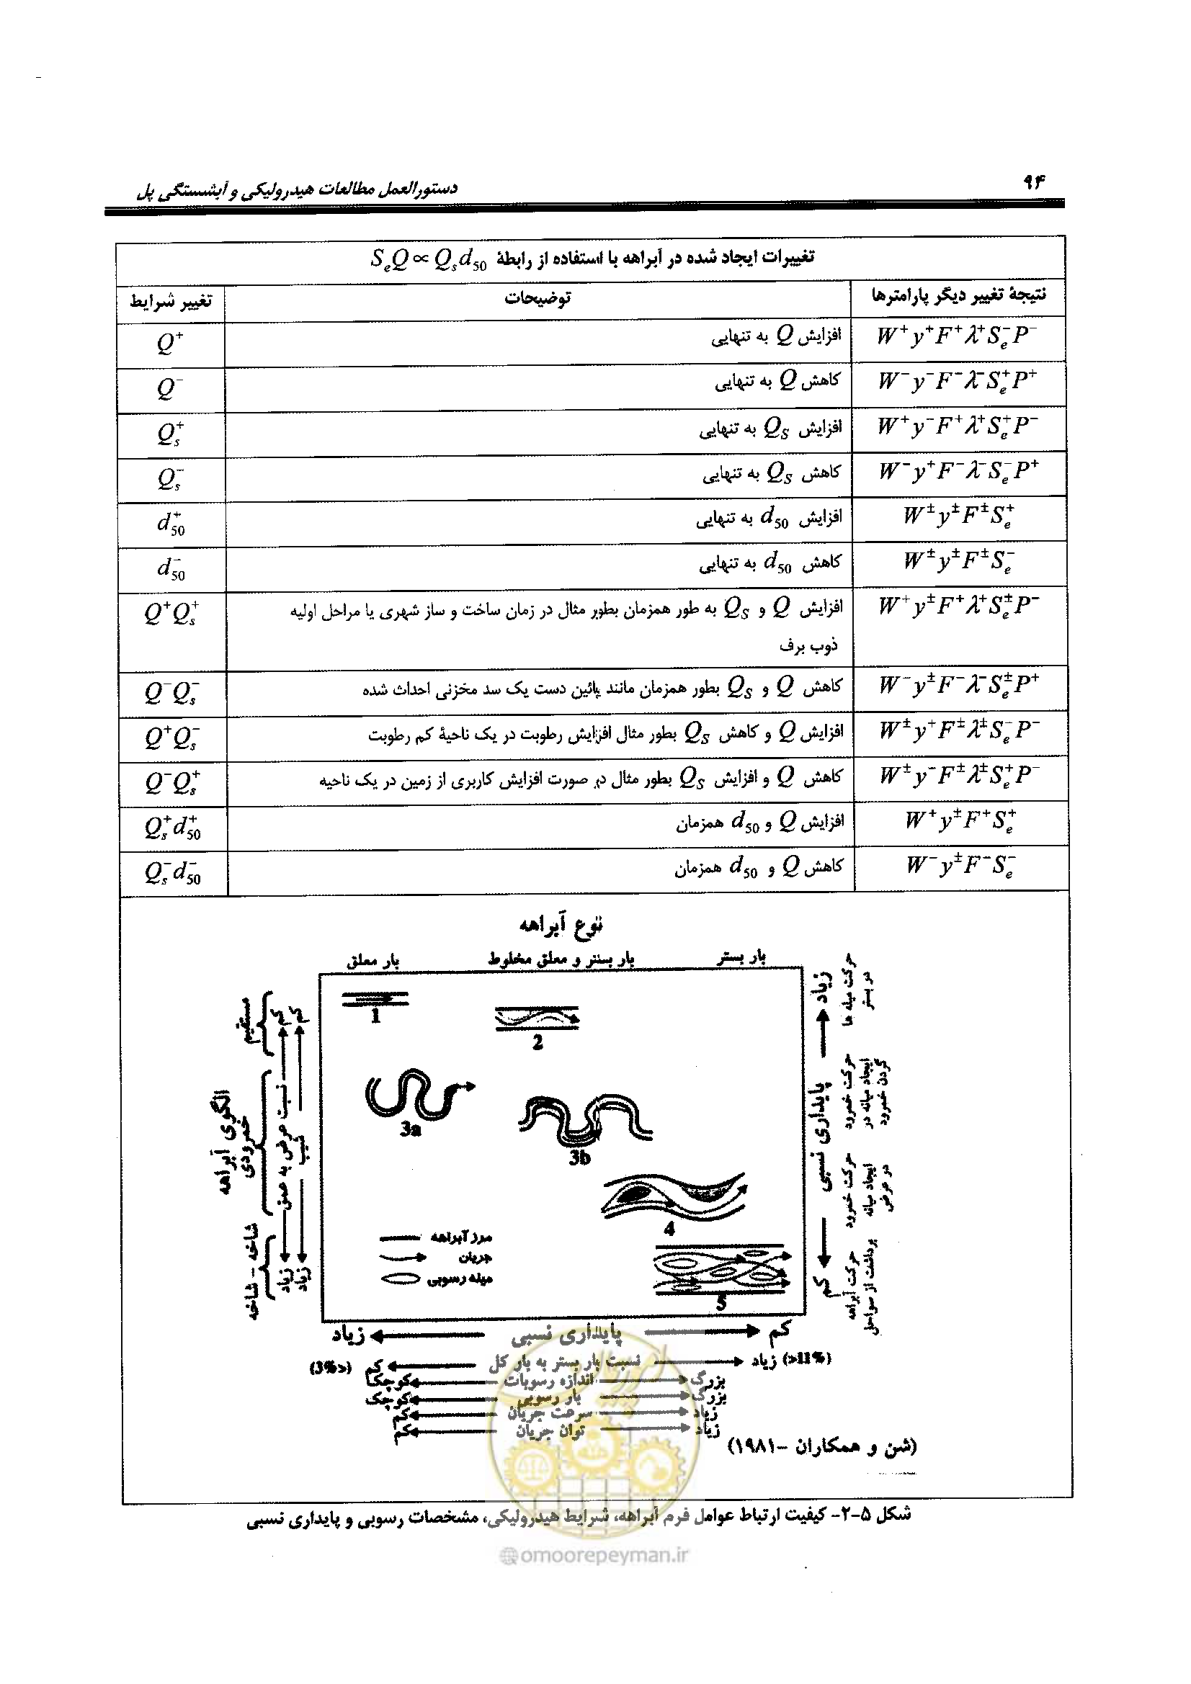 ۹۴
دستورالعمل مطالعات هیدرولیکی و آبشستگی پل
تغییرات ایجاد شده در آبراهه با استفاده از رابطهٔ SₑQ ∝ Qₛd₅₀
تغییر شرایط | توضیحات | نتیجهٔ تغییر دیگر پارامترها
Q⁺ | افزایش Q به تنهایی | W⁺y⁺F⁺λ⁺Sₑ⁻P⁻
Q⁻ | کاهش Q به تنهایی | W⁻y⁻F⁻λ⁻Sₑ⁺P⁺
Qₛ⁺ | افزایش Qₛ به تنهایی | W⁺y⁻F⁺λ⁺Sₑ⁺P⁻
Qₛ⁻ | کاهش Qₛ به تنهایی | W⁻y⁺F⁻λ⁻Sₑ⁻P⁺
d₅₀⁺ | افزایش d₅₀ به تنهایی | W±y±F±Sₑ⁺
d₅₀⁻ | کاهش d₅₀ به تنهایی | W±y±F±Sₑ⁻
Q⁺Qₛ⁺ | افزایش Q و Qₛ به طور همزمان بطور مثال در زمان ساخت و ساز شهری یا مراحل اولیه | W⁺y±F⁺λ⁺Sₑ±P⁻
ذوب برف
Q⁻Qₛ⁻ | کاهش Q و Qₛ بطور همزمان مانند پائین دست یک سد مخزنی احداث شده | W⁻y±F⁻λ⁻Sₑ±P⁺
Q⁺Qₛ⁻ | افزایش Q و کاهش Qₛ بطور مثال افزایش رطوبت در یک ناحیهٔ کم رطوبت | W±y⁺F±λ±Sₑ⁻P⁻
Q⁻Qₛ⁺ | کاهش Q و افزایش Qₛ بطور مثال در صورت افزایش کاربری از زمین در یک ناحیه | W±y⁻F±λ±Sₑ⁺P⁻
Qₛ⁺d₅₀⁺ | افزایش Q و d₅₀ همزمان | W⁺y±F⁺Sₑ⁺
Qₛ⁻d₅₀⁻ | کاهش Q و d₅₀ همزمان | W⁻y±F⁻Sₑ⁻
نوع آبراهه
بار بستر
بار بستر و معلق مخلوط
بار معلق
1
2
3a
3b
4
5
مرز آبراهه
جریان
میله رسوبی
الگوی آبراهه
مستقیم
خمرودی
شاخه - شاخه
کم نسبت عرض به عمق زیاد
کم شیب زیاد
زیاد پایداری نسبی کم
حرکت میله ها
در بستر
حرکت خمرود
ایجاد میانه در
گردن خمرود
حرکت خمرود
ایجاد میانه
در عرض
حرکت آبراهه
برداشت از سواحل
کم پایداری نسبی زیاد
(>11%) زیاد نسبت بار بستر به بار کل کم (<3%)
بزرگ اندازه رسوبات کوچک
بزرگ بار رسوبی کوچک
زیاد سرعت جریان کم
زیاد توان جریان کم
(شن و همکاران -۱۹۸۱)
شکل ۵-۲- کیفیت ارتباط عوامل فرم آبراهه، شرایط هیدرولیکی، مشخصات رسوبی و پایداری نسبی
@omoorepeyman.ir